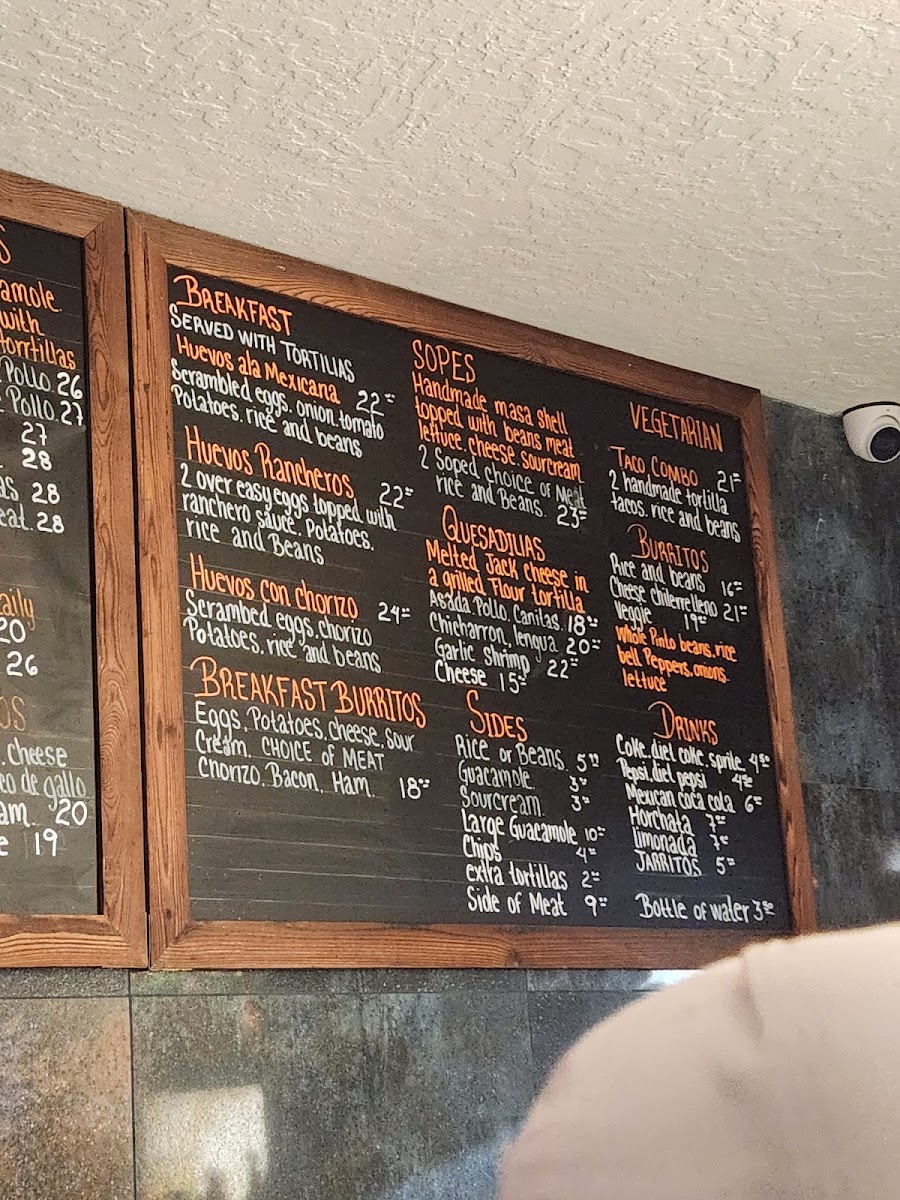 S
amole
with
torrtillas
Pollo. 26
Pollo. 27
27
28
as 28
eat. 28
aily
20
26
OS
. cheese
eo de gallo
am. 20
e 19
BREAKFAST
SERVED WITH TORTILLAS
Huevos ala Mexicana 22
Scrambled eggs. onion. tomato
Potatoes. rice and beans
Huevos Rancheros 22
2 over easy eggs topped with
ranchero sauce. Potatoes.
rice and Beans
Huevos con chorizo 24
Scrambed eggs. chorizo
Potatoes. rice and beans
BREAKFAST BURRITOS
Eggs. Potatoes. cheese, sour
Cream. CHOICE of MEAT
Chorizo. Bacon. Ham. 18
SOPES
Handmade masa shell
topped with beans meat
lettuce. cheese. sourcream
2 Soped. choice of Meat
rice and Beans. 23
QUESADILIAS
Melted Jack cheese in
a grilled Flour tortilla
Asada. Pollo. Canitas. 18
Chicharron, lengua 20
Garlic shrimp 22
Cheese 15
SIDES
Rice or Beans 5
Guacamole 3
Sourcream 3
Large Guacamole 10
Chips 4
extra tortillas 2
Side of Meat 9
VEGETARIAN
TACO COMBO 21
2 handmade tortilla
tacos. rice and beans
BURRITOS
Rice and beans 16
Cheese chilerrelleno 21
Veggie 19
Whole Pinto beans. rice
bell Peppers. onions.
lettuce
DRINKS
Coke. diet coke. sprite 4
Pepsi. diet pepsi 4
Mexican coca cola 6
Horchata 7
limonada 7
JARRITOS 5
Bottle of water 3